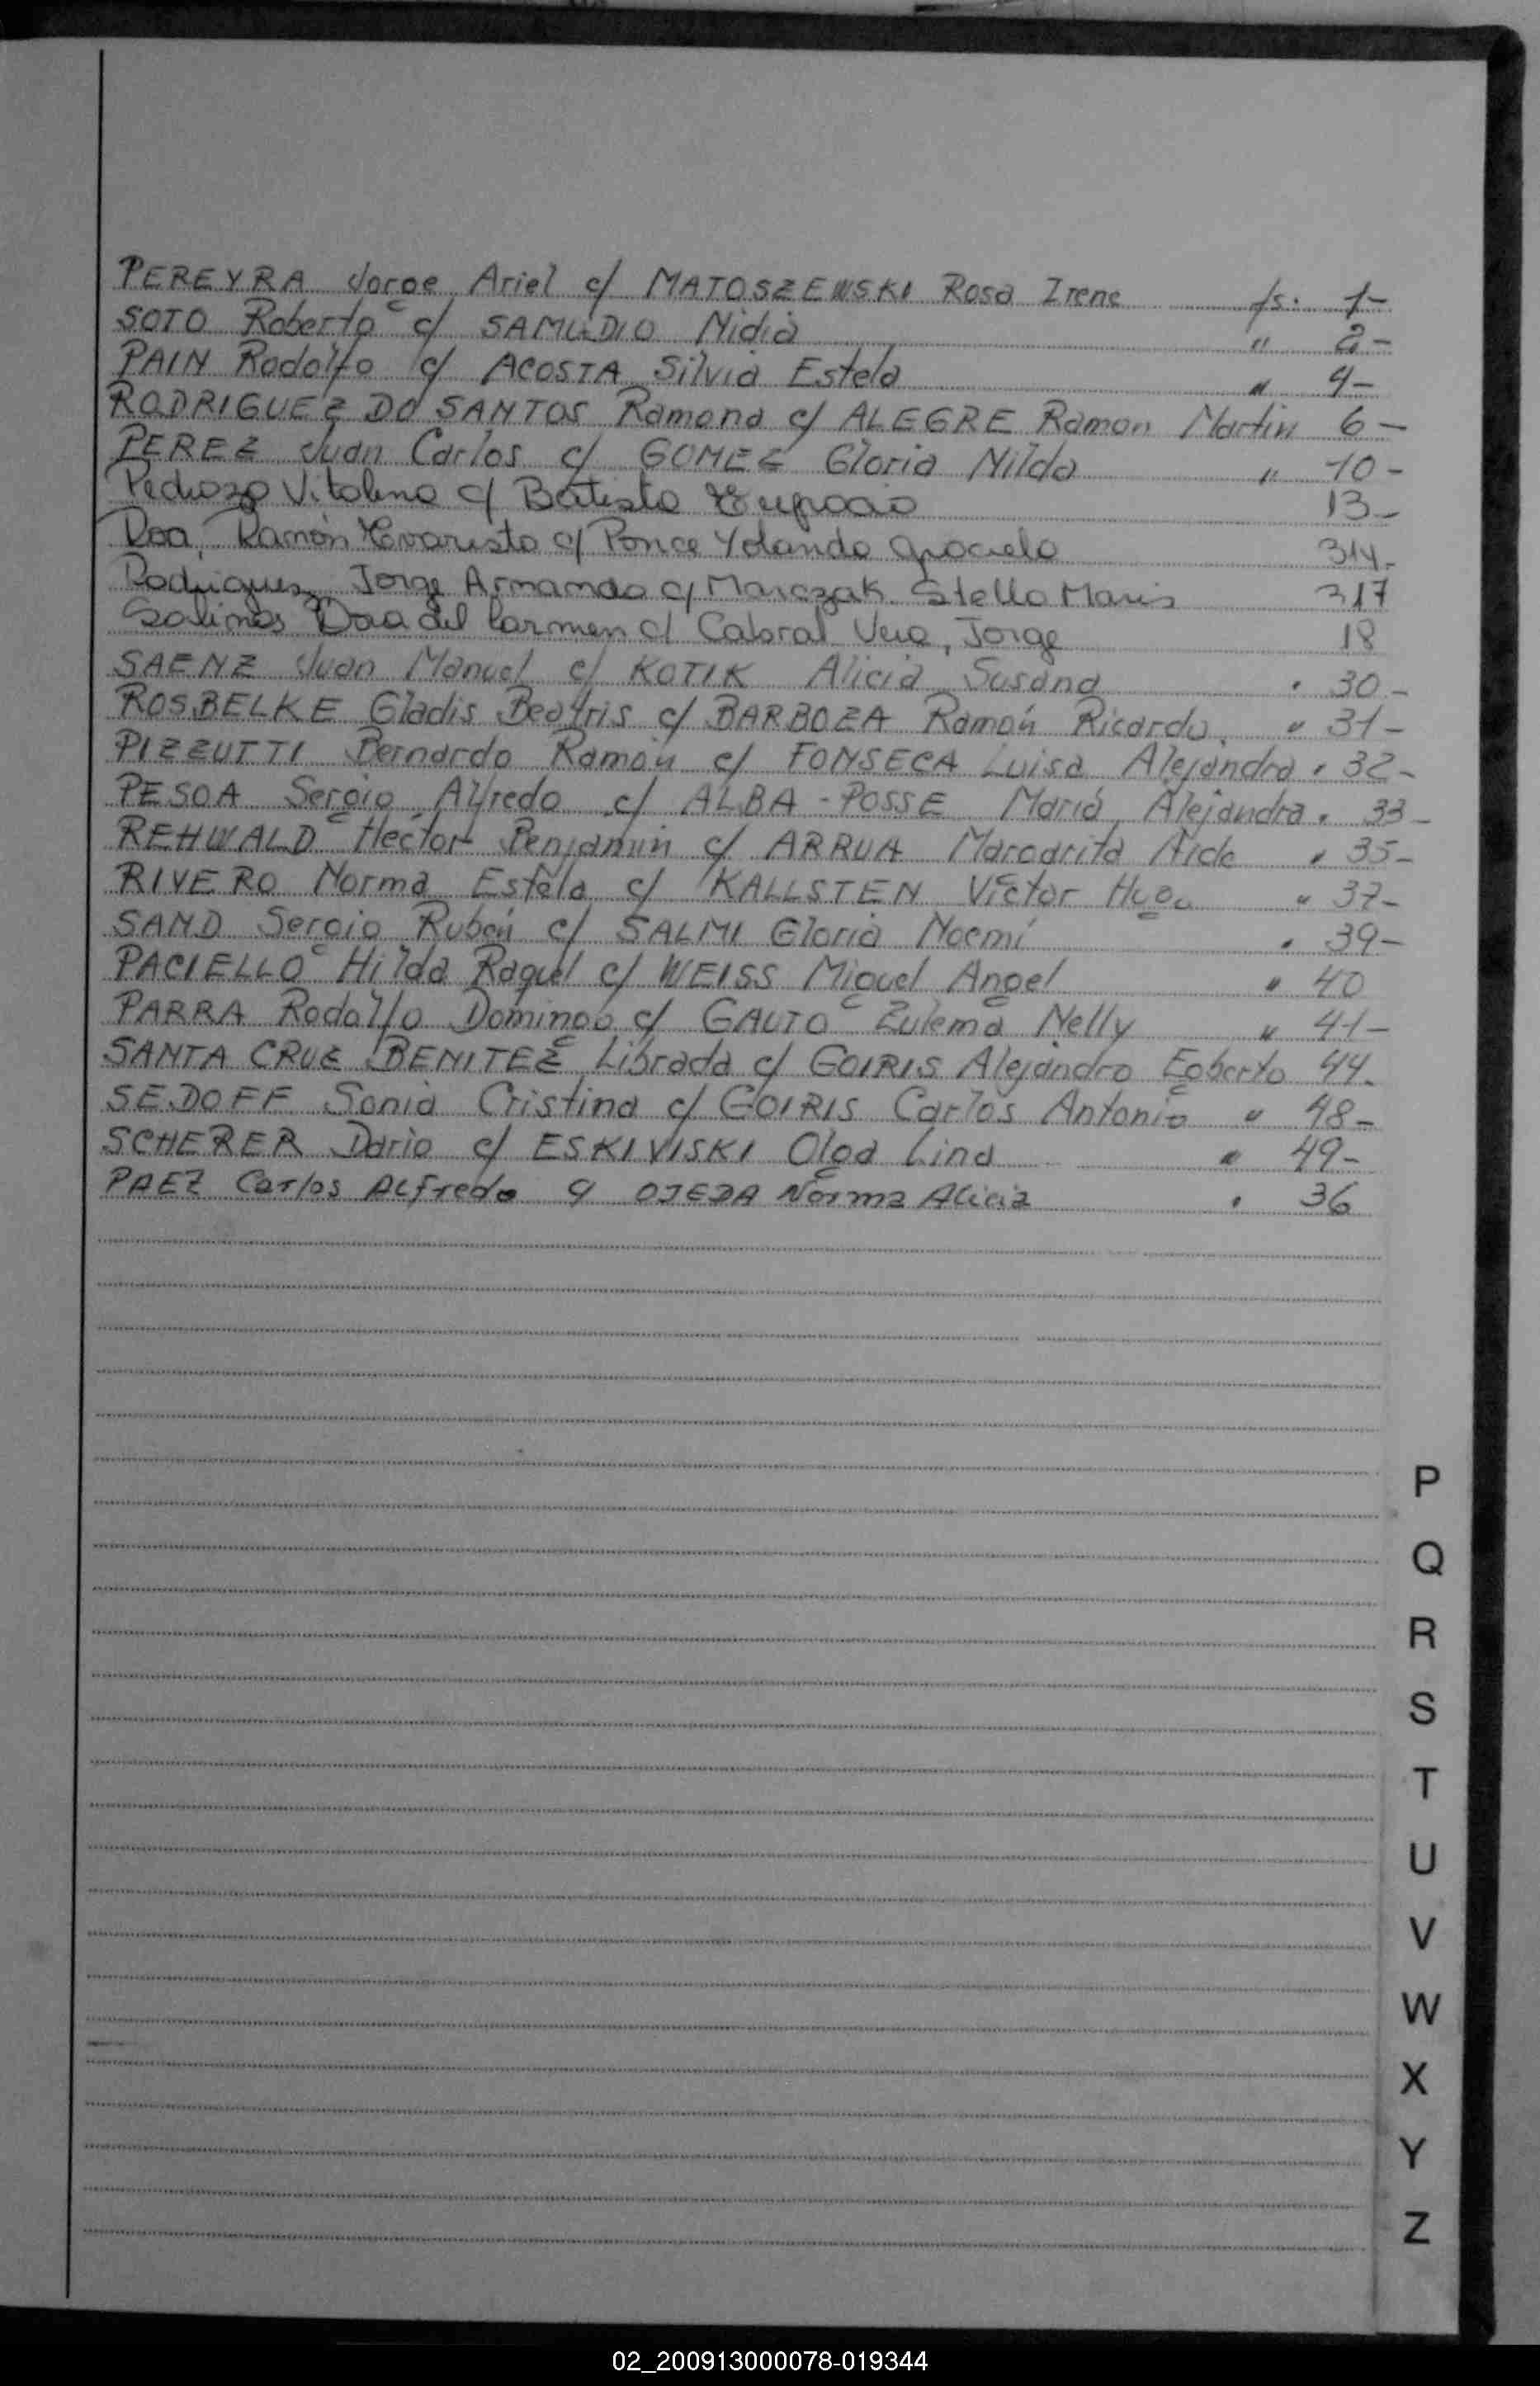 PEREYRA Jorge Ariel c/ MATOSZEWSKI Rosa Irene fs: 1-
SOTO Roberto c/ SAMUDIO Nidia " 2-
PAIN Rodolfo c/ ACOSTA Silvia Estela " 4-
RODRIGUEZ DO SANTOS Ramona c/ ALEGRE Ramon Martin 6-
PEREZ Juan Carlos c/ GOMEZ Gloria Nilda " 10-
Pedrozo Vitalina c/ Batista 13-
Roa, Ramón Evaristo c/ Ponce Yolanda Graciela 314-
Rodriguez, Jorge Armando c/ Marczak Stella Maris 317
Salinas Dora del Carmen c/ Cabral Vera, Jorge 18
SAENZ Juan Manuel c/ KOTIK Alicia Susana " 30-
ROSBELKE Gladis Beatris c/ BARBOZA Ramón Ricardo. " 31-
PIZZUTTI Bernardo Ramón c/ FONSECA Luisa Alejandra " 32-
PESOA Sergio Alfredo c/ ALBA-POSSE Maria Alejandra " 33-
REHWALD Hector Benjamin c/ ARRUA Margarita Aide " 35-
RIVERO Norma Estela c/ KALLSTEN Victor Hugo " 37-
SAND Sergio Rubén c/ SALMI Gloria Noemí " 39-
PACIELLO Hilda Raquel c/ WEISS Miguel Angel " 40
PARRA Rodolfo Domingo c/ GAUTO Zulema Nelly " 41-
SANTA CRUZ BENITEZ Librada c/ GOIRIS Alejandro Egberto 44-
SEDOFF Sonia Cristina c/ GOIRIS Carlos Antonio " 48-
SCHERER Dario c/ ESKIVISKI Olga Lina " 49-
PAEZ Carlos Alfredo c/ OJEDA Norma Alicia " 36
P
Q
R
S
T
U
V
W
X
Y
Z
02_200913000078-019344